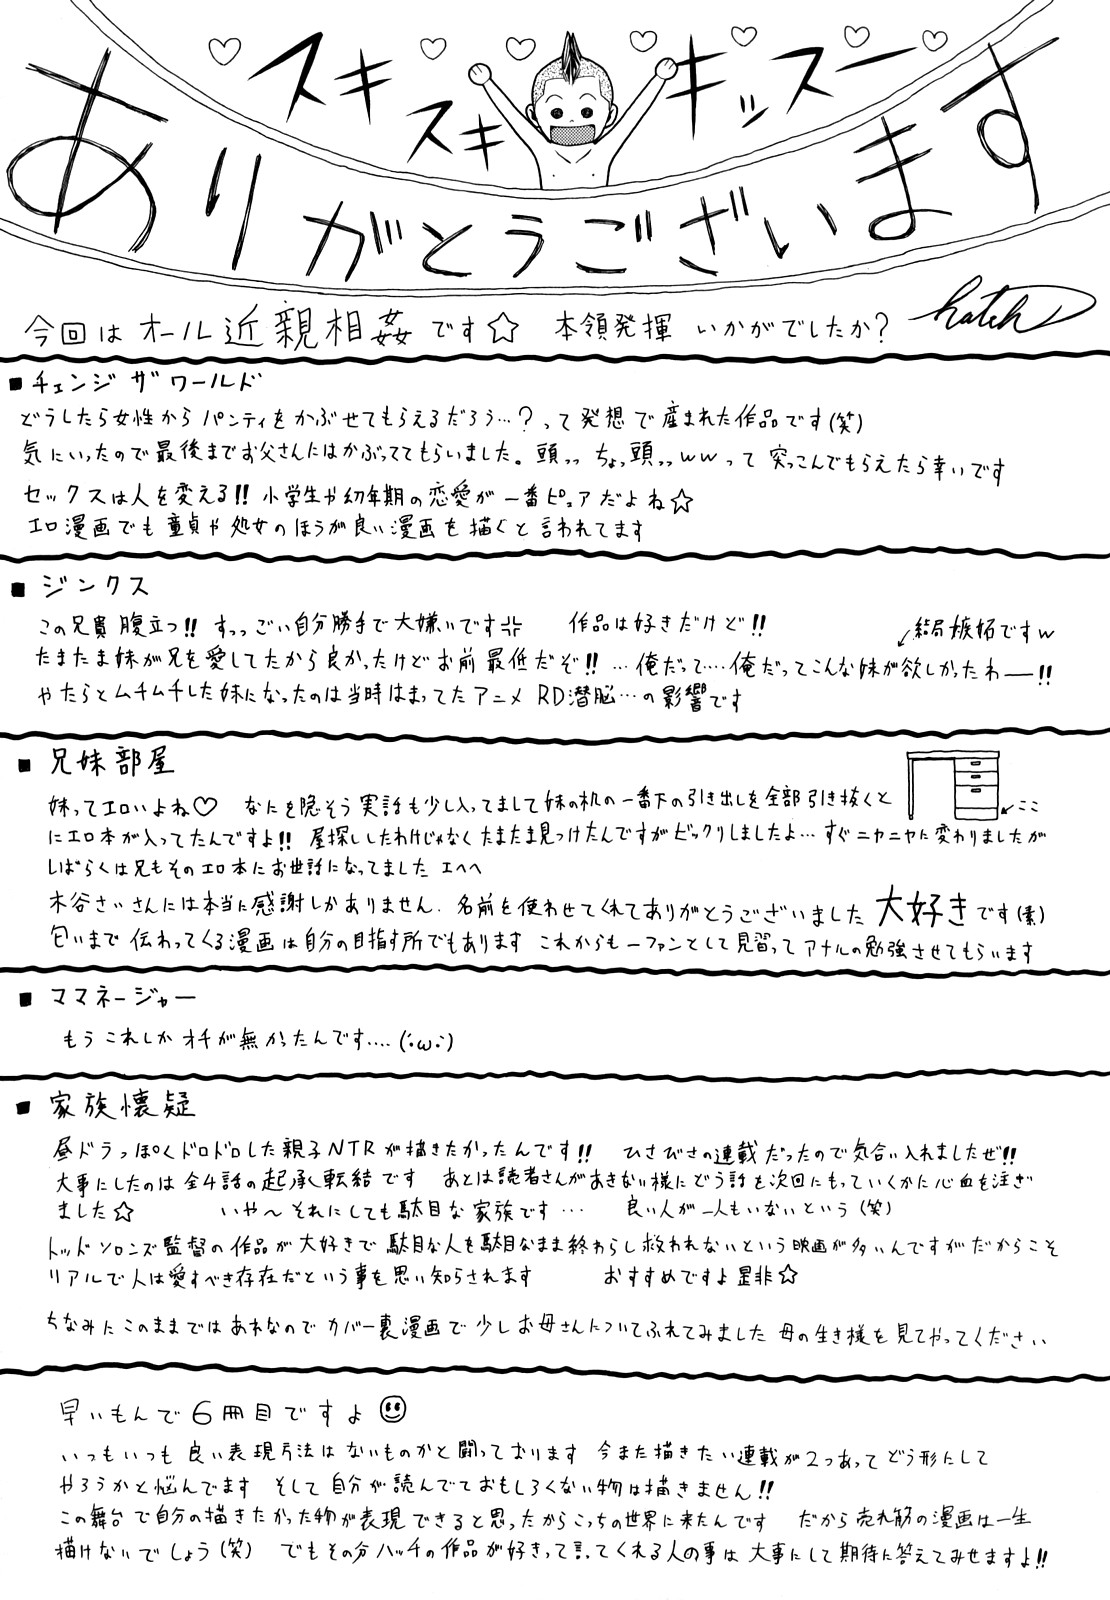 スキ スキ キッスー
ありがとうございます
hatch
今回は オール近親相姦です☆ 本領発揮 いかがでしたか?
■チェンジ ザ ワールド
どうしたら女性から パンティを かぶせてもらえるだろう…?って発想で産まれた作品です(笑)
気にいったので最後までお父さんにはかぶっててもらいました。頭ッ ちょっ頭ッww って 突っこんでもらえたら幸いです
セックスは人を変える!! 小学生や幼年期の恋愛が 一番ピュアだよね☆
エロ漫画でも童貞や処女のほうが良い漫画を描くと言われてます
■ジンクス
この兄貴腹立つ!! すっっごい自分勝手で大嫌いです 作品は好きだけど!!
結局嫉妬ですw
たまたま妹が兄を愛してたから良かったけどお前最低だぞ!! …俺だって…俺だってこんな妹が欲しかったわ―!!
やたらとムチムチした妹になったのは当時はまってたアニメ RD潜脳…の影響です
■兄妹部屋
妹ってエロいよね♡ なにを隠そう実話も少し入ってまして妹の机の一番下の引き出しを全部引き抜くと
ここ
にエロ本が入ってたんですよ!! 屋探ししたわけじゃなくたまたま見つけたんですがビックリしましたよ… すぐニヤニヤに変わりましたが
しばらくは兄もそのエロ本にお世話になってました エヘヘ
木谷さいさんには本当に感謝しかありません. 名前を使わせてくれてありがとうございました 大好きです(素)
匂いまで伝わってくる漫画は自分の目指す所でもあります これからも一ファンとして見習って アナルの勉強させてもらいます
■ママネージャー
もうこれしかオチが無かったんです….(・ω・)
■家族懐疑
昼ドラっぽくドロドロした親子NTRが描きたかったんです!! ひさびさの連載だったので気合い入れましたぜ!!
大事にしたのは全4話の起承転結です あとは読者さんがあきない様にどう話を次回にもっていくかに心血を注ぎ
ました☆ いや〜それにしても駄目な家族です… 良い人が一人もいないという(笑)
トッドソロンズ監督の作品が大好きで 駄目な人を駄目なまま終わらし救われないという映画が多いんですがだからこそ
リアルで人は愛すべき存在だという事を思い知らされます おすすめですよ是非☆
ちなみにこのままではあれなのでカバー裏漫画で少しお母さんについてふれてみました 母の生き様を見てやってください
早いもんで6冊目ですよ
いつもいつも良い表現方法はないものかと闘っております 今また描きたい連載が2つあってどう形にして
やろうかと悩んでます そして自分が読んでておもしろくない物は描きません!!
この舞台で自分の描きたかった物が表現できると思ったからこっちの世界に来たんです だから売れ筋の漫画は一生
描けないでしょう(笑) でもその分ハッチの作品が好きって言ってくれる人の事は大事にして期待に答えてみせますよ!!